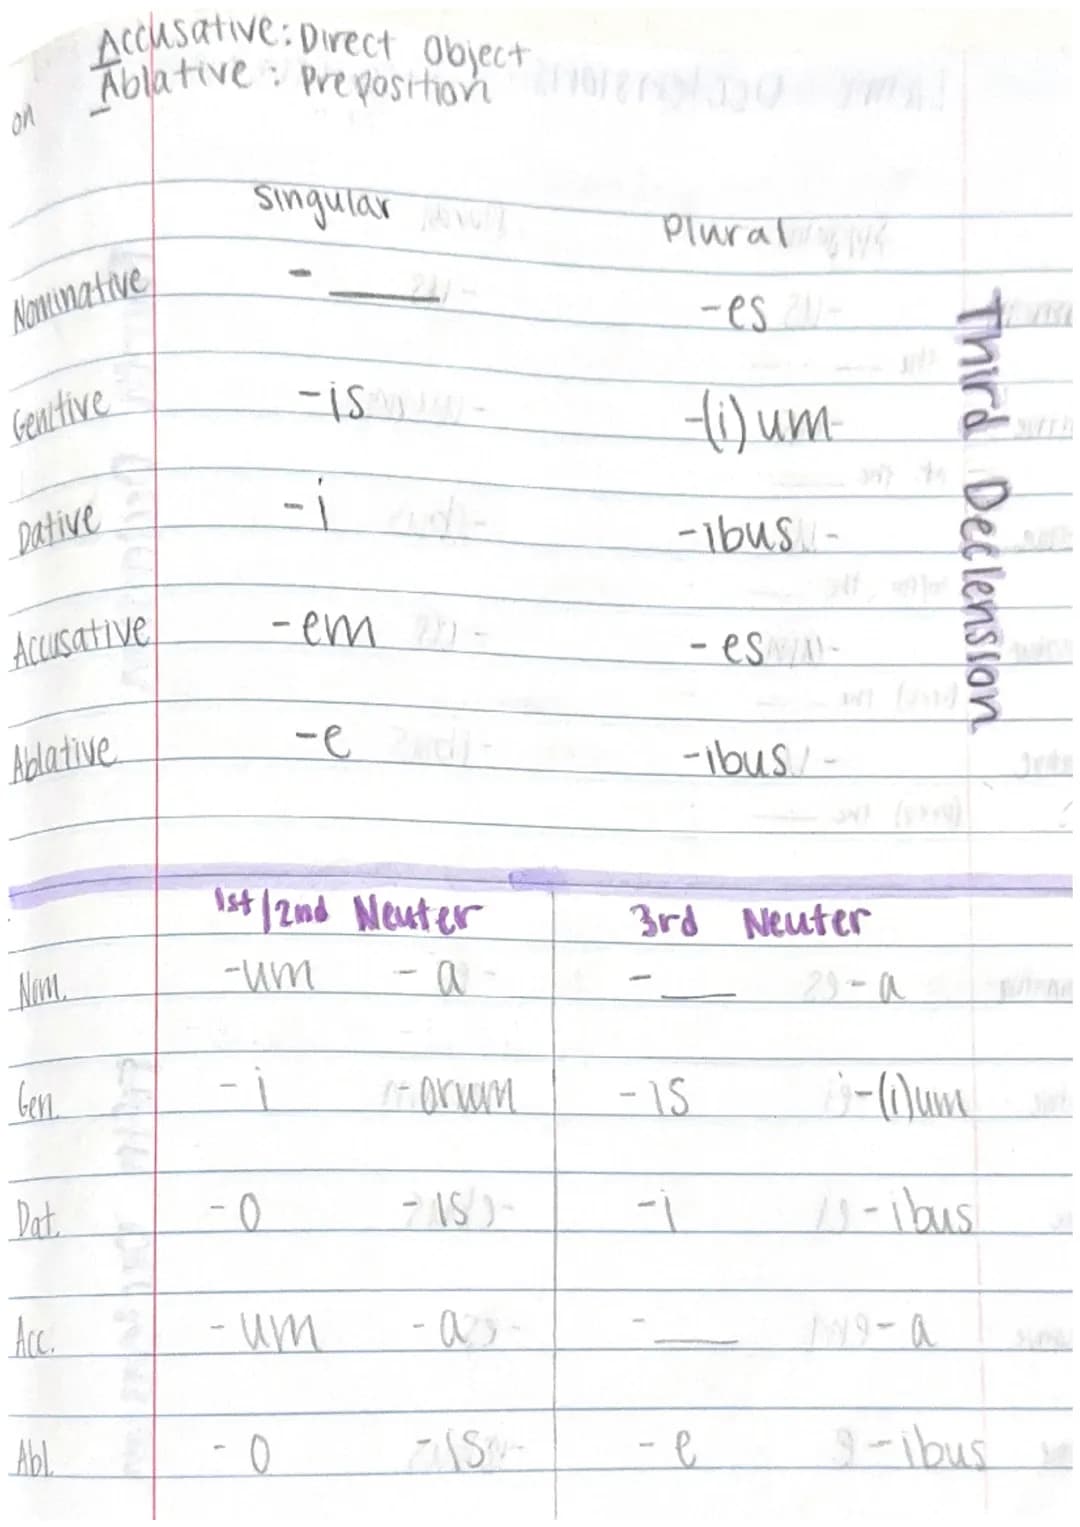 Accusative: Direct Object
Ablative: Preposition
on
Singular Plural
Nominative -___ -es
Genitive -is -(i)um
Dative -i -ibus
Accusative -em -es
Ablative -e -ibus
Third Declension
1st/2nd Neuter 3rd Neuter
Nom. -um -a -___ -a
Gen. -i -orum -is -(i)um
Dat. -o -is -i -ibus
Acc. -um -a -___ -a
Abl. -o -is -e -ibus